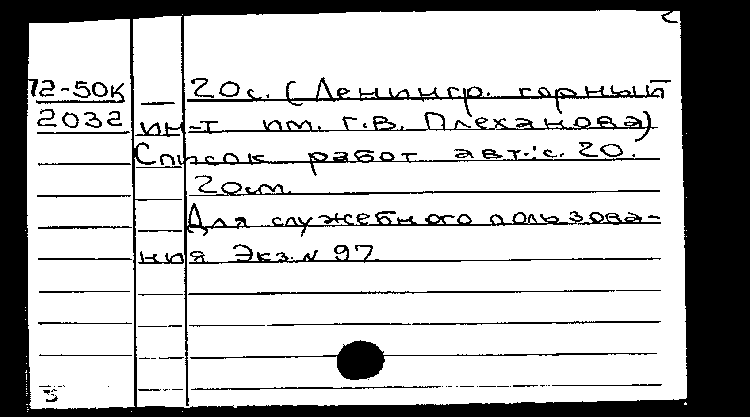 72-50К — 20с. (Ленингр. горный
2032 ин-т им. Г.В. Плеханова)
Список работ авт.: с. 20.
20см.
Для служебного пользова-
ния Экз. № 97